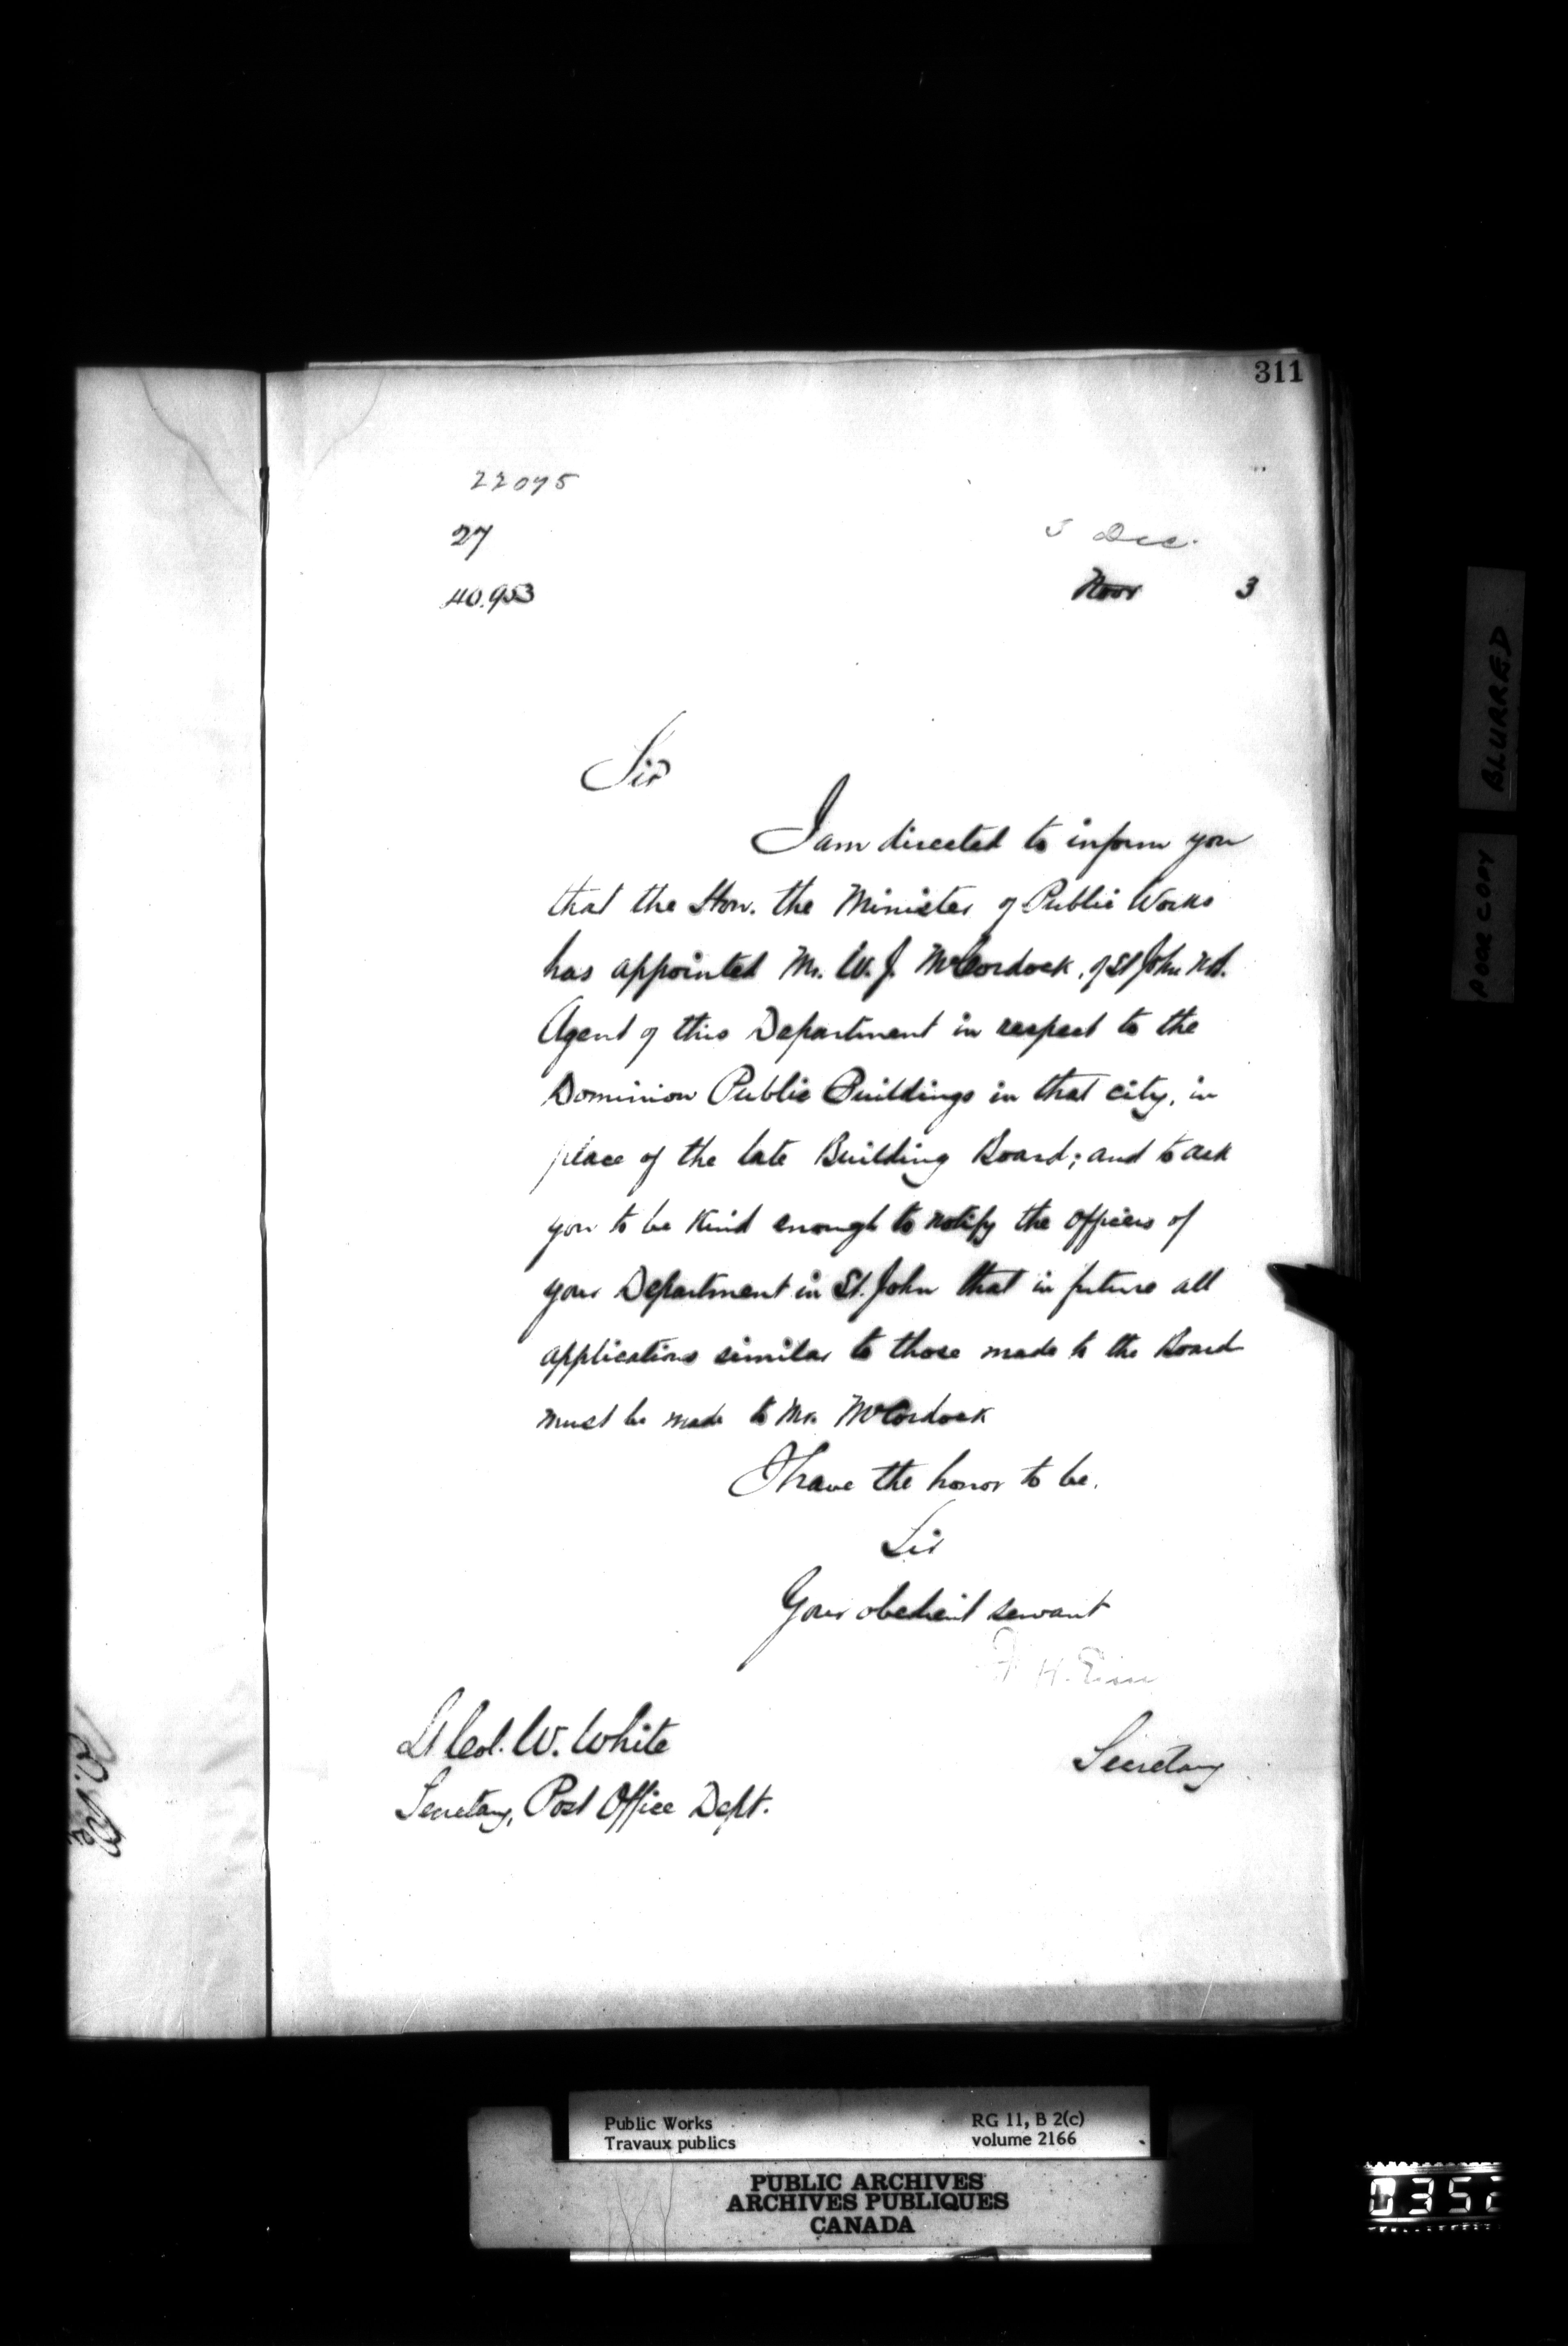 311
22075
27
5 Dec.
40.953
Novr 3
Sir
I am directed to inform you
that the Hon. the Minister of Public Works
has appointed Mr. W. J. McCordock, of St John N.B.
Agent of this Department in respect to the
Dominion Public Buildings in that city, in
place of the late Building Board; and to ask
you to be kind enough to notify the officers of
your Department in St. John that in future all
applications similar to those made to the Board
must be made to Mr. McCordock
I have the honor to be,
Sir
Your obedient servant
F. H. Ennis
Lt Col. W. White
Secretary
Secretary, Post Office Dept.
BLURRED
POOR COPY
Public Works
Travaux publics
RG 11, B 2(c)
volume 2166
PUBLIC ARCHIVES
ARCHIVES PUBLIQUES
CANADA
0352